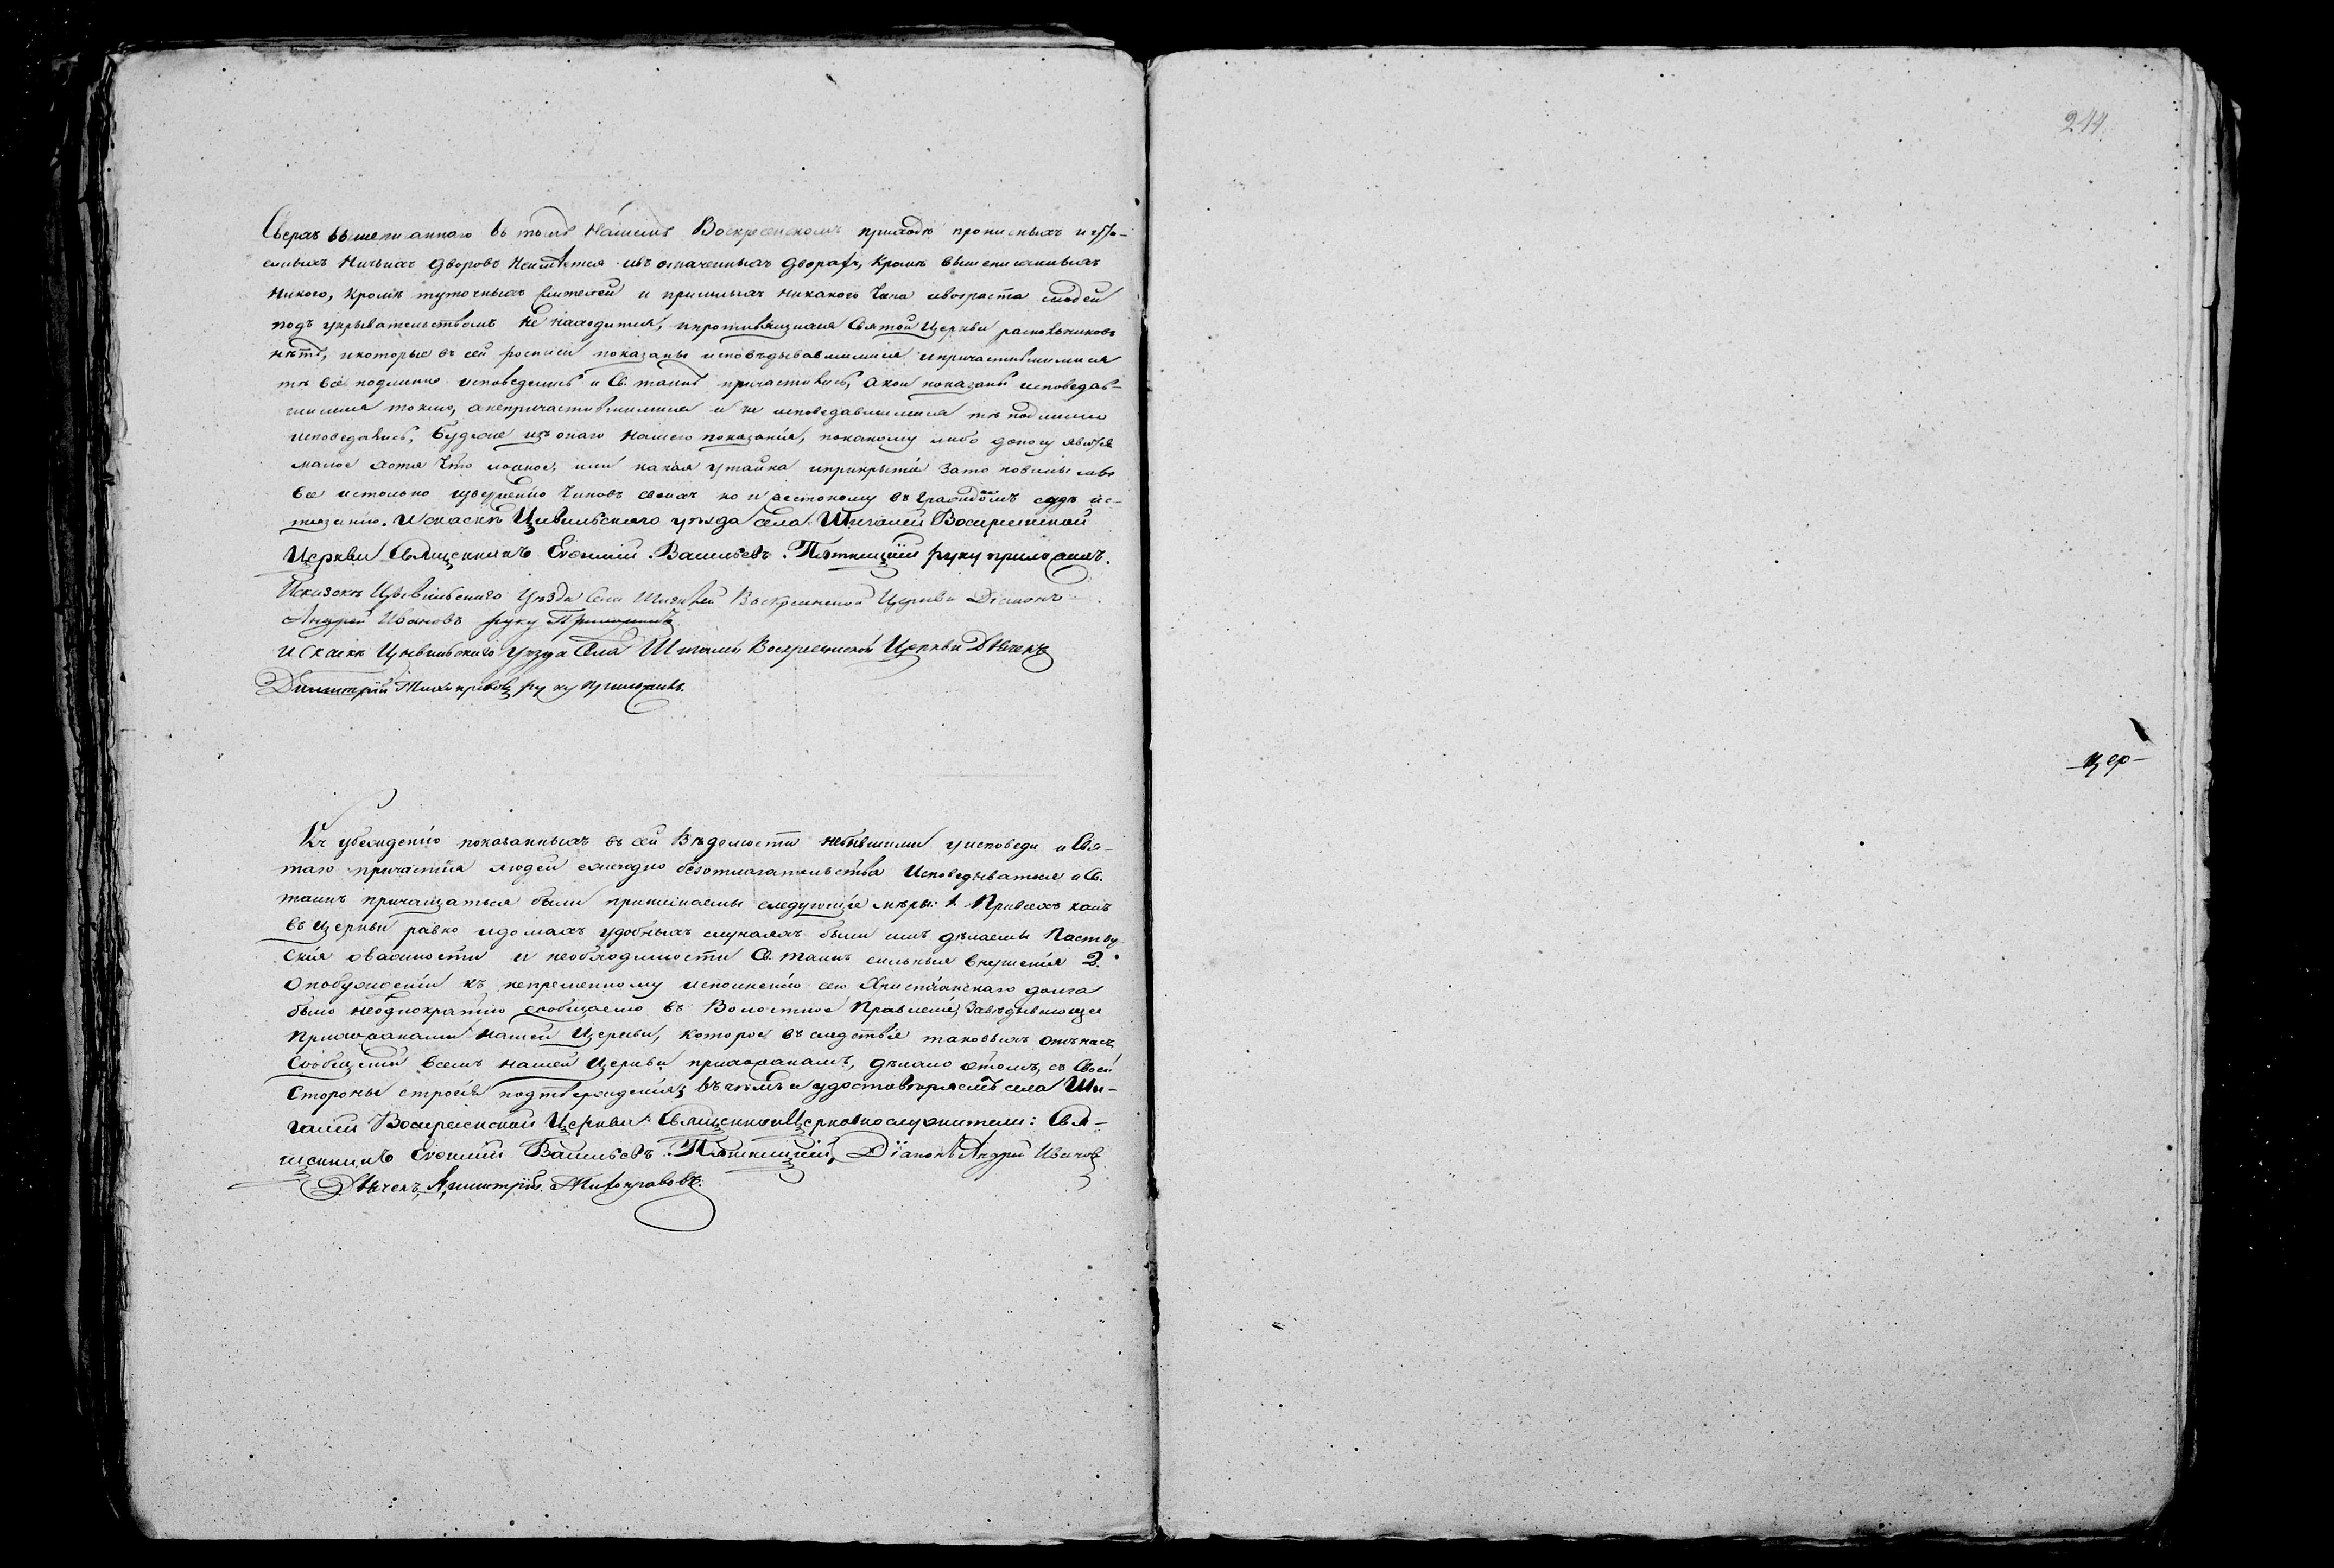 Сверхъ вышеписаннаго въ томъ Нашемъ Воскресенскомъ приходѣ прописныхъ и утае-
енныхъ Ничьихъ дворовъ Неимѣется ивъ означенныхъ дворахъ, Кромѣ вышеписанныхъ
Никого, кромѣ туточныхъ жителей и пришлыхъ никакого Чина ивозраста людей
подъ укрывательствомъ не находится, ипротивящихся Святой Церкви раскольниковъ
нѣтъ, икоторые въ сей росписи показаны исповѣдывавшимися ипричастившимися
тѣ все подлинно исповедались и Св. таинъ причастились, акои показаны исповедав-
шимися токмо, анепричастившимися и не исповедавшимися тѣ подлинно
исповедались, Будеже изъ онаго Нашего показания, покакому либо доносу явится
малое хотя Что ложное, или какая утайка иприкрытіе Зато повинны мы
все истолько изверженію Чиновъ своихъ но и жестокому въ Гражданскомъ судѣ ис-
тязанію. Искаскѣ Цывильскаго уѣзда села Шигалей Воскресенской
Церкви Священникъ Евфимій Васильевъ Пятницкій руку приложилъ.
Искаске Цывильскаго Уѣзда Села Шигалей Воскресенской Церкви Діаконъ
Андрей Ивановъ руку Приложилъ
И Скаске Цывильскаго Уѣзда Села Шигалей Воскресенской Церкви Дьячекъ
Димитрій Тихонравовъ руку приложилъ.
Къ убежденію показанныхъ въ сей Вѣдомости небывшими уисповеди и Свя-
таго причастія людей ежегодно безотлагательства Исповедываться и Св.
таинъ причащаться были принимаемы следующіе мѣры: 1. Привсехъ какъ
въ Церкви равно идомахъ удобныхъ случаяхъ были имъ дѣлаемы Пастыр-
скія оважности и необходимости Св. таинъ сильныя внушенія 2.
Опобужденіи къ непременному исполненію сего Христіанскаго долга
было неоднократно сообщаемо въ Волостное Правленіе, Завѣдывающее
прихожанами Нашей Церкви, которое въ следствіе таковыхъ отъ насъ
Сообщеній всемъ нашей Церкви прихожанамъ, дѣлало отомъ, съ Своей
Стороны строгія подтвержденія; въ чемъ и удостовѣряемъ села Ши-
галей Воскресенской Церкви Священноицерковнослужители: Свя-
щенникъ Евфимій Васильевъ Пятницкій, Діаконъ Андрей Ивановъ
Дьячекъ, Димитрій Тихонравовъ.
244.
-цер-